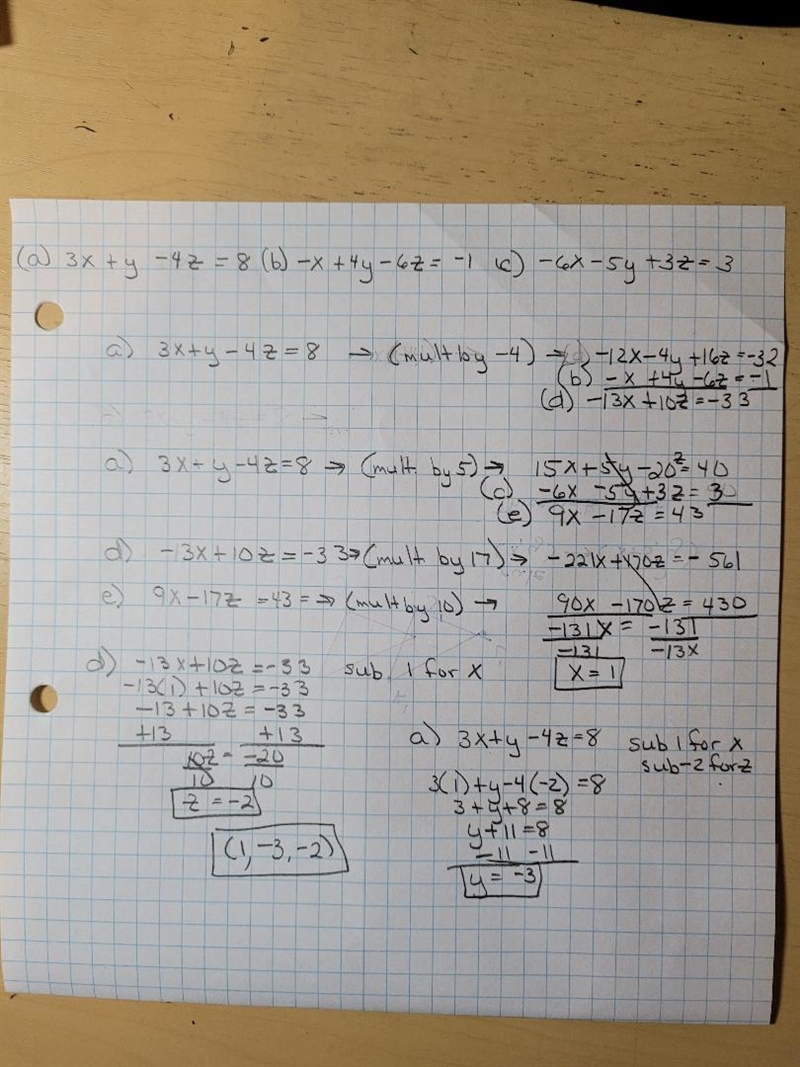 (a) 3x + y - 4z = 8 (b) -x + 4y - 6z = -1 (c) -6x - 5y + 3z = 3
a) 3x + y - 4z = 8 → (mult by -4) → -12x - 4y + 16z = -32
(b) -x + 4y - 6z = -1
(d) -13x + 10z = -33
a) 3x + y - 4z = 8 → (mult. by 5) → 15x + 5y - 20z = 40
(c) -6x - 5y + 3z = 3
(e) 9x - 17z = 43
d) -13x + 10z = -33 → (mult by 17) → -221x + 170z = -561
e) 9x - 17z = 43 = → (mult by 10) → 90x - 170z = 430
-131x = -131
-131 -13x
x = 1
d) -13x + 10z = -33 sub 1 for x
-13(1) + 10z = -33
-13 + 10z = -33
+13 +13
10z = -20
10 10
z = -2
(1, -3, -2)
a) 3x + y - 4z = 8 sub 1 for x
sub -2 for z
3(1) + y - 4(-2) = 8
3 + y + 8 = 8
y + 11 = 8
-11 -11
y = -3